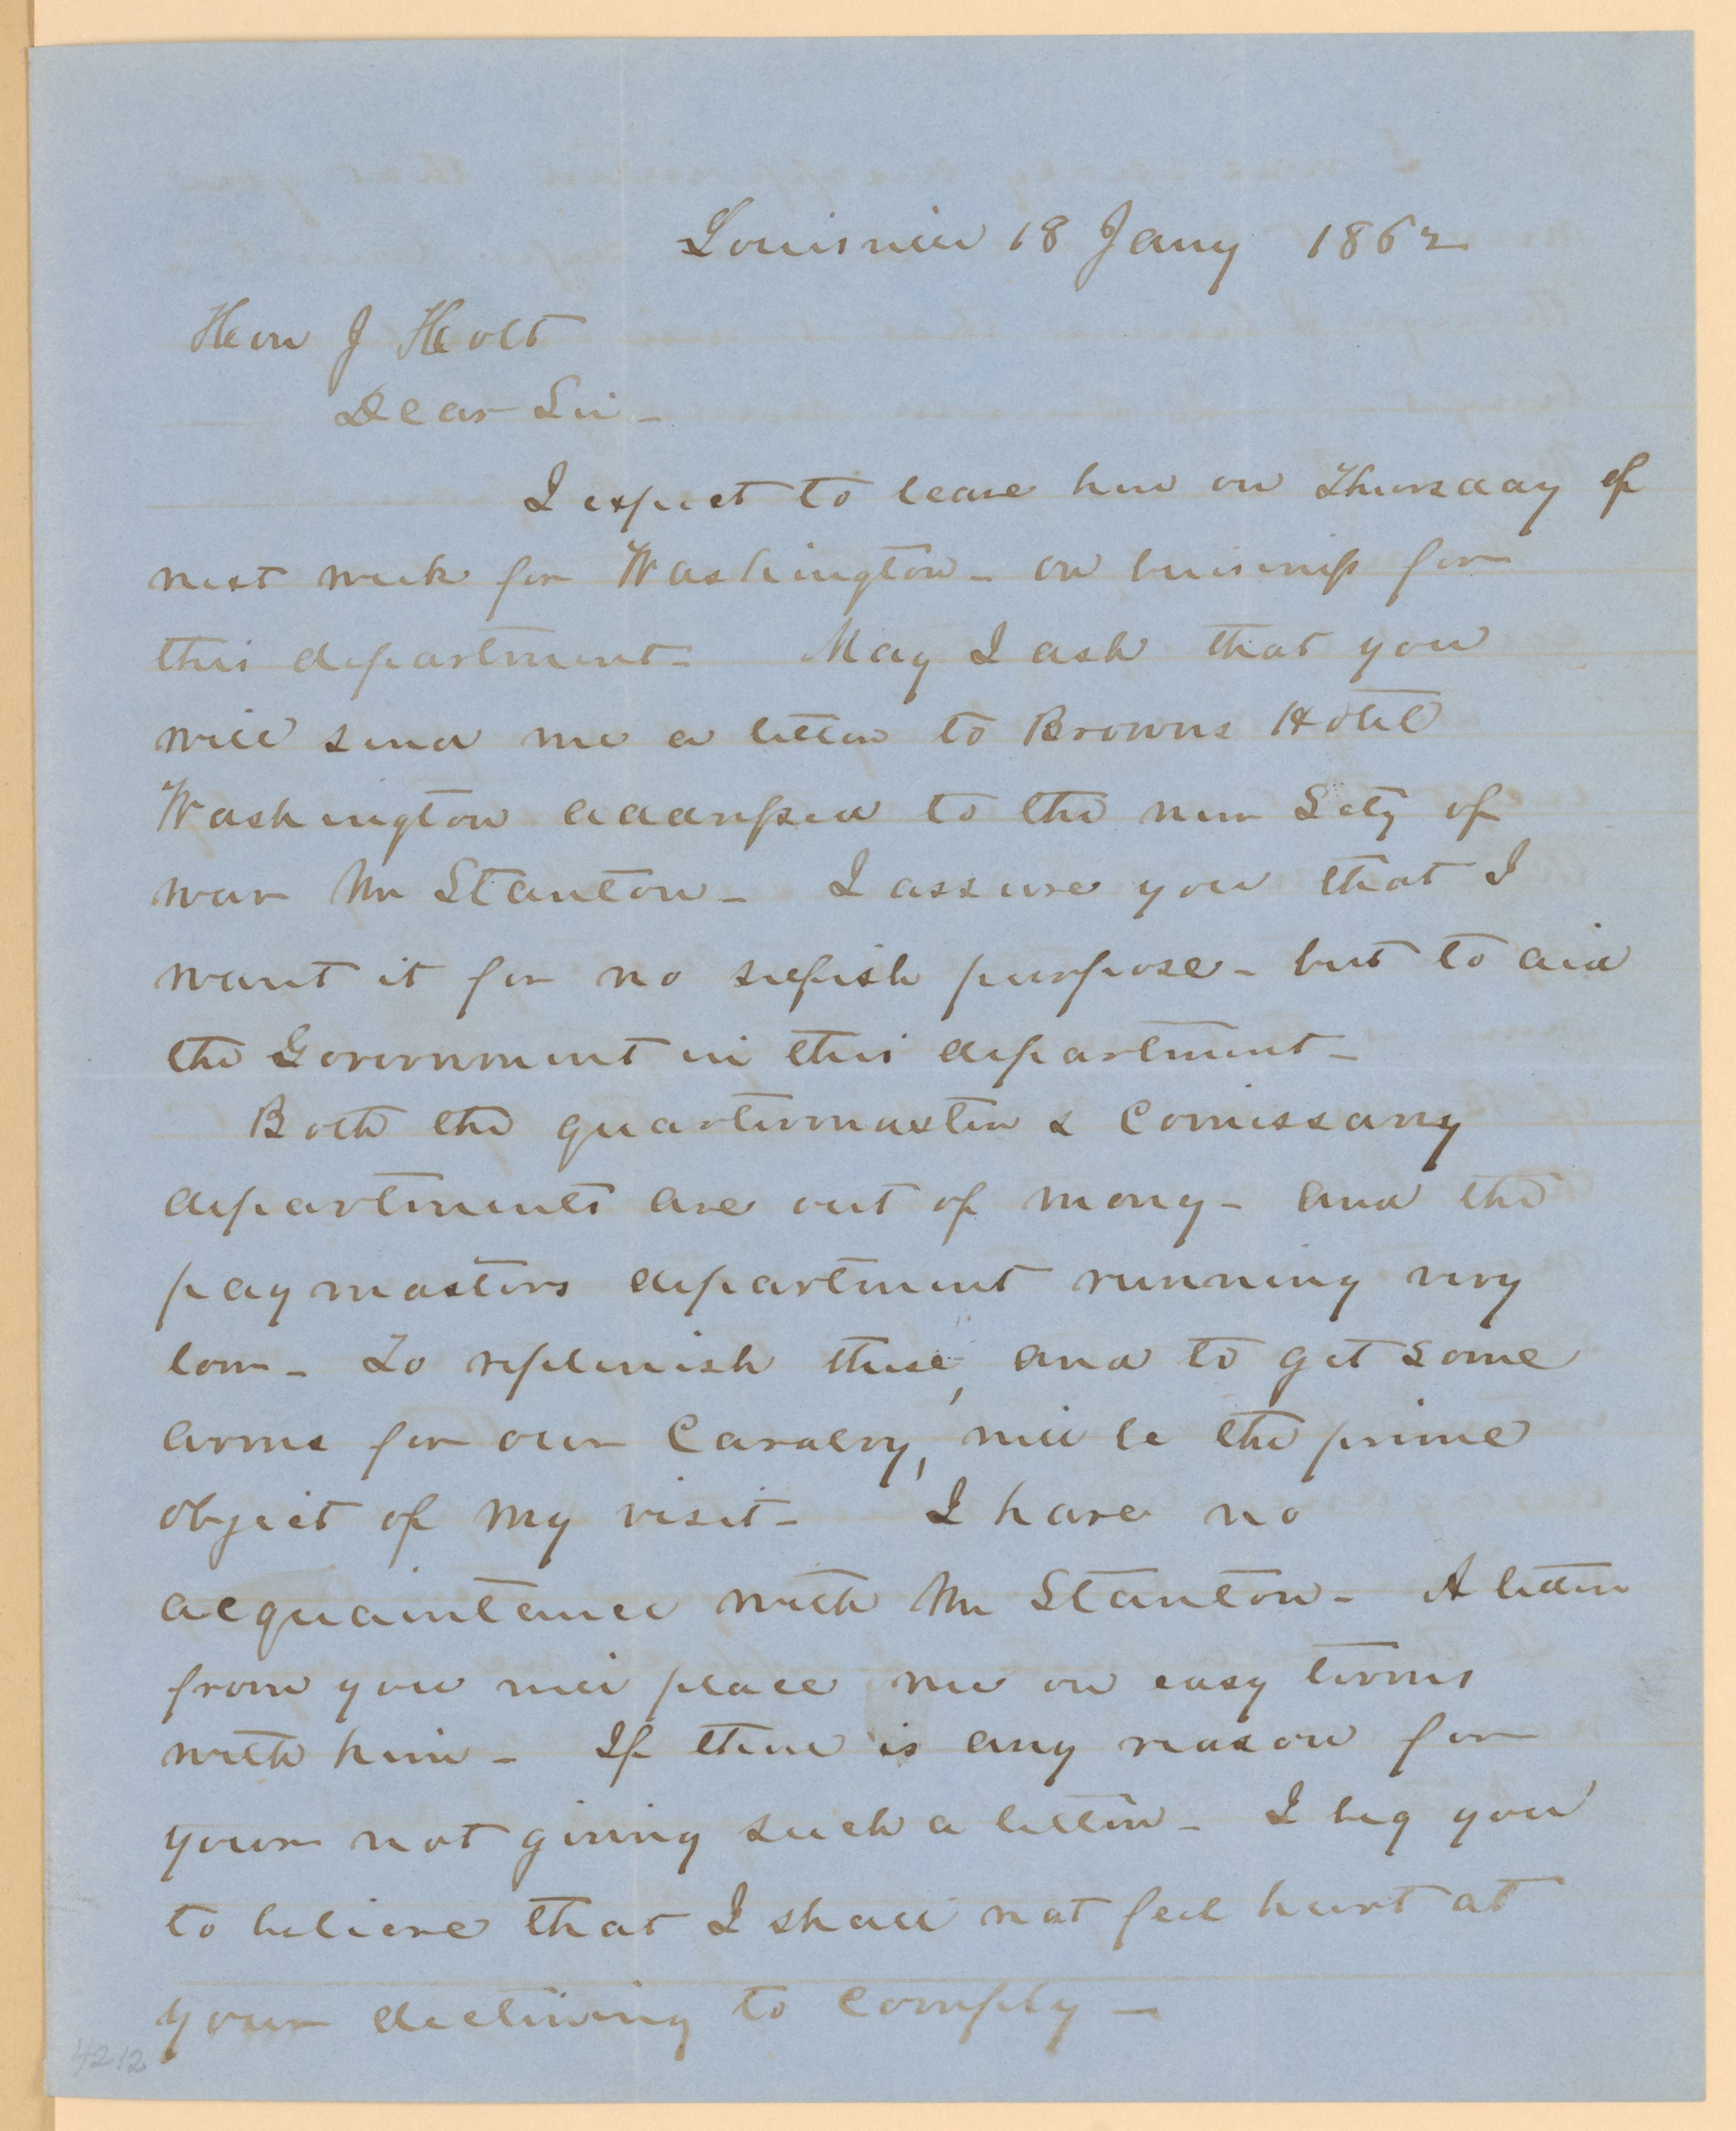 Louisville 18 Jany 1862
Hon J Holt
Dear Sir -
I expect to leave here on Thursday of
next week for Washington - on business for
this department - May I ask that you
will send me a letter to Browns Hotel
Washington addressed to the new Scty of
war Mr Stanton - I assure you that I
want it for no selfish purpose - but to aid
the Government in this department -
Both the quartermaster & Comissary
departments are out of mony - and the
paymasters department running very
low - To replenish these, and to get some
arms for our Cavalry, will be the prime
object of my visit - I have no
acquaintance with Mr Stanton - A letter
from you will place me on easy terms
with him - If there is any reason for
your not giving such a letter - I beg you
to believe that I shall not feel hurt at
your declining to comply -
4212